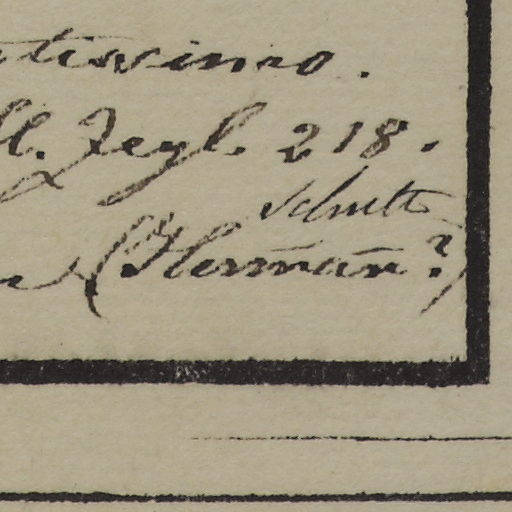 tissimo.
ll. Zeyl. 218.
Schult
(Herman̄?)